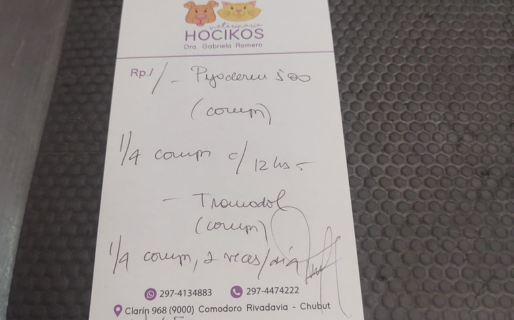 veterinaria
HOCIKOS
Dra. Gabriela Romero
Rp./ - Pyoderm 500
(comp)
1/4 comp c/12hs -
- Tramadol
(comp)
1/4 comp, 2 veces/día
297-4134883 297-4474222
Clarín 968 (9000) Comodoro Rivadavia - Chubut